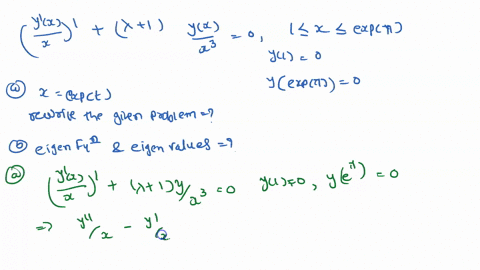 (y'(x)/x)' + (λ+1) y(x)/x³ = 0, 1 ≤ x ≤ exp(π)
y(1) = 0
y(exp(π)) = 0
ⓐ x = exp(t)
rewrite the given problem = ?
ⓑ eigen Fyⁿ & eigen values = ?
ⓐ (y'(x)/x)' + (λ+1) y/x³ = 0 y(1) = 0, y(e^π) = 0
⇒ y''/x − y'/x